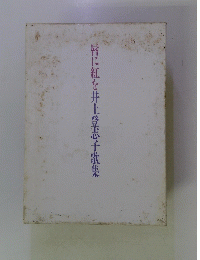 唇に紅を井上登志子歌集